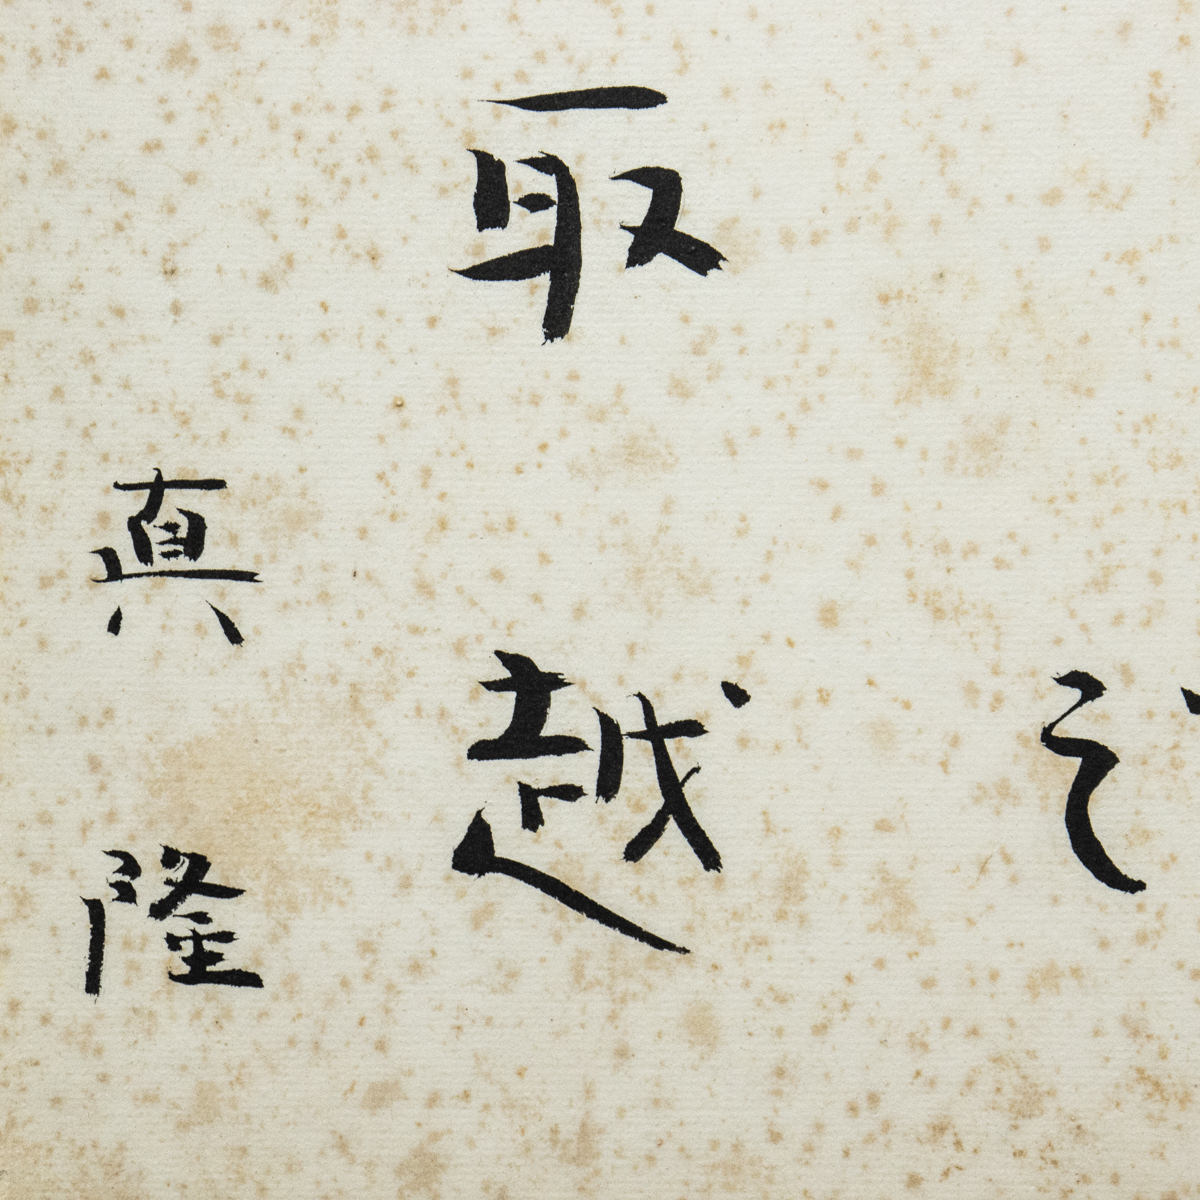 之
取越
真隆